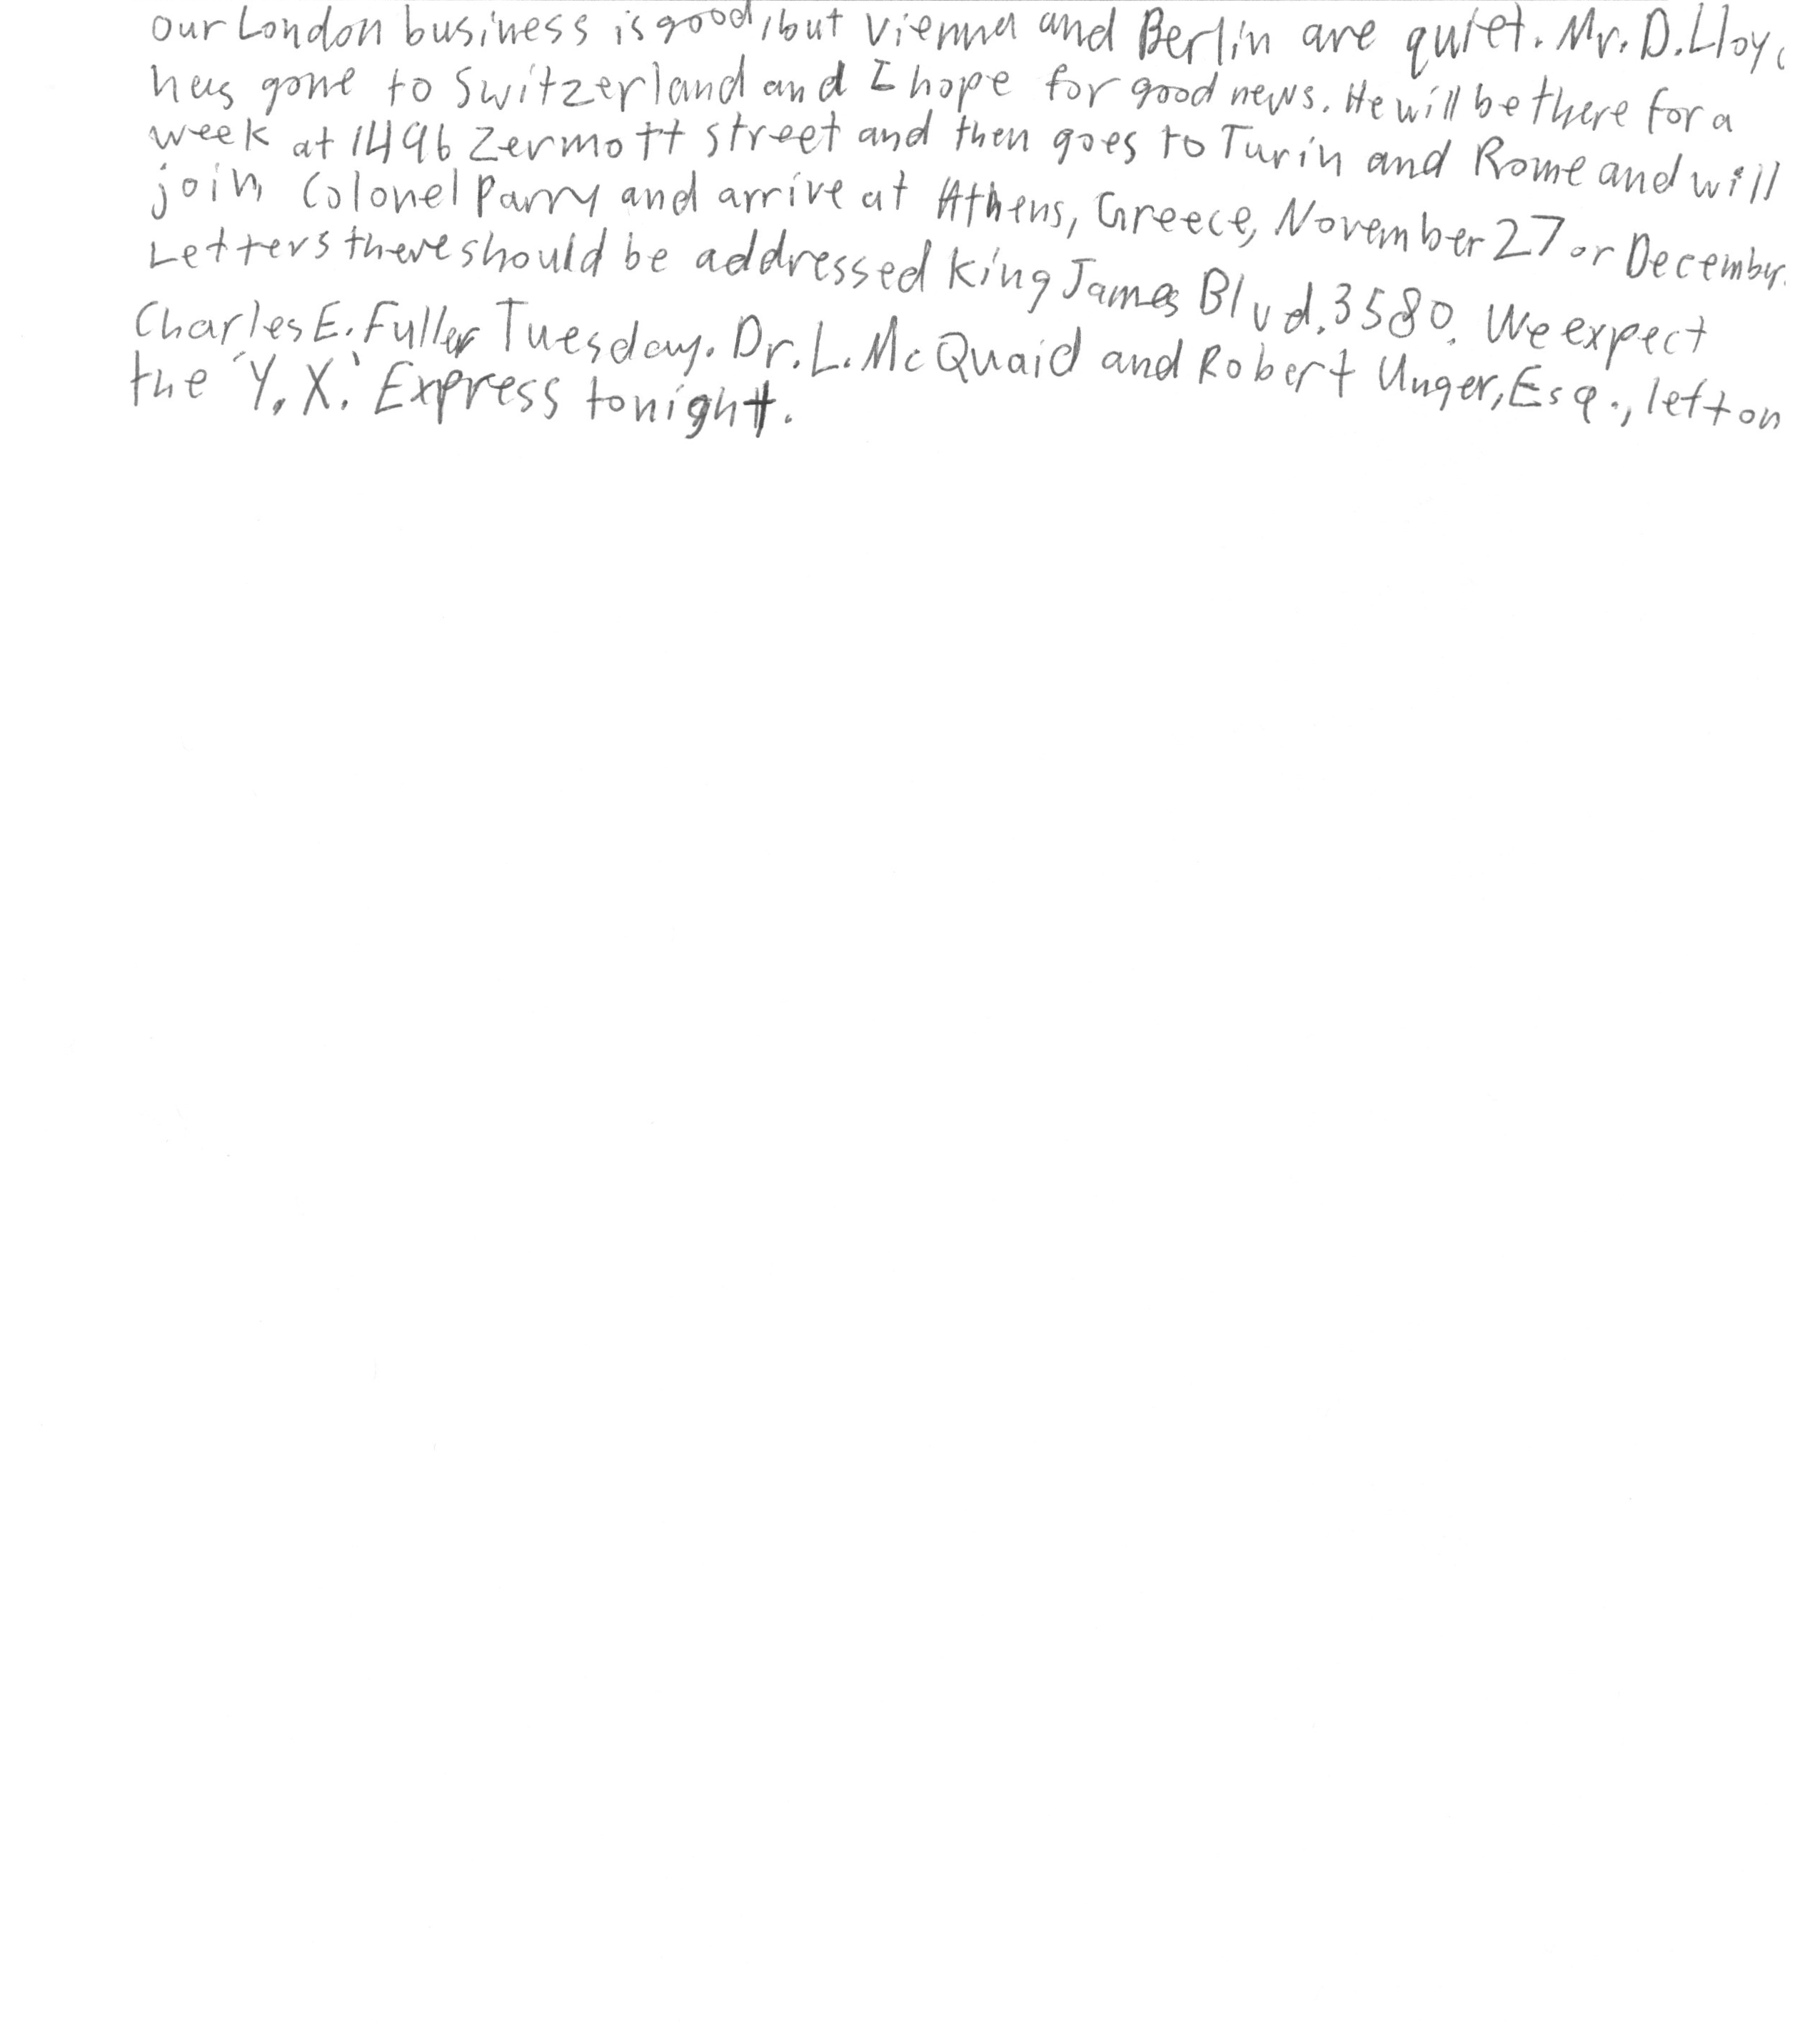 our London business is good, but Vienna and Berlin are quiet. Mr. D. Lloy
has gone to Switzerland and I hope for good news. He will be there for a
week at 1496 Zermott street and then goes to Turin and Rome and will
join Colonel Parry and arrive at Athens, Greece, November 27 or December.
Letters there should be addressed King James Blvd. 3580. We expect
Charles E. Fuller Tuesday. Dr. L. McQuaid and Robert Unger, Esq., left on
the 'Y. X.' Express tonight.